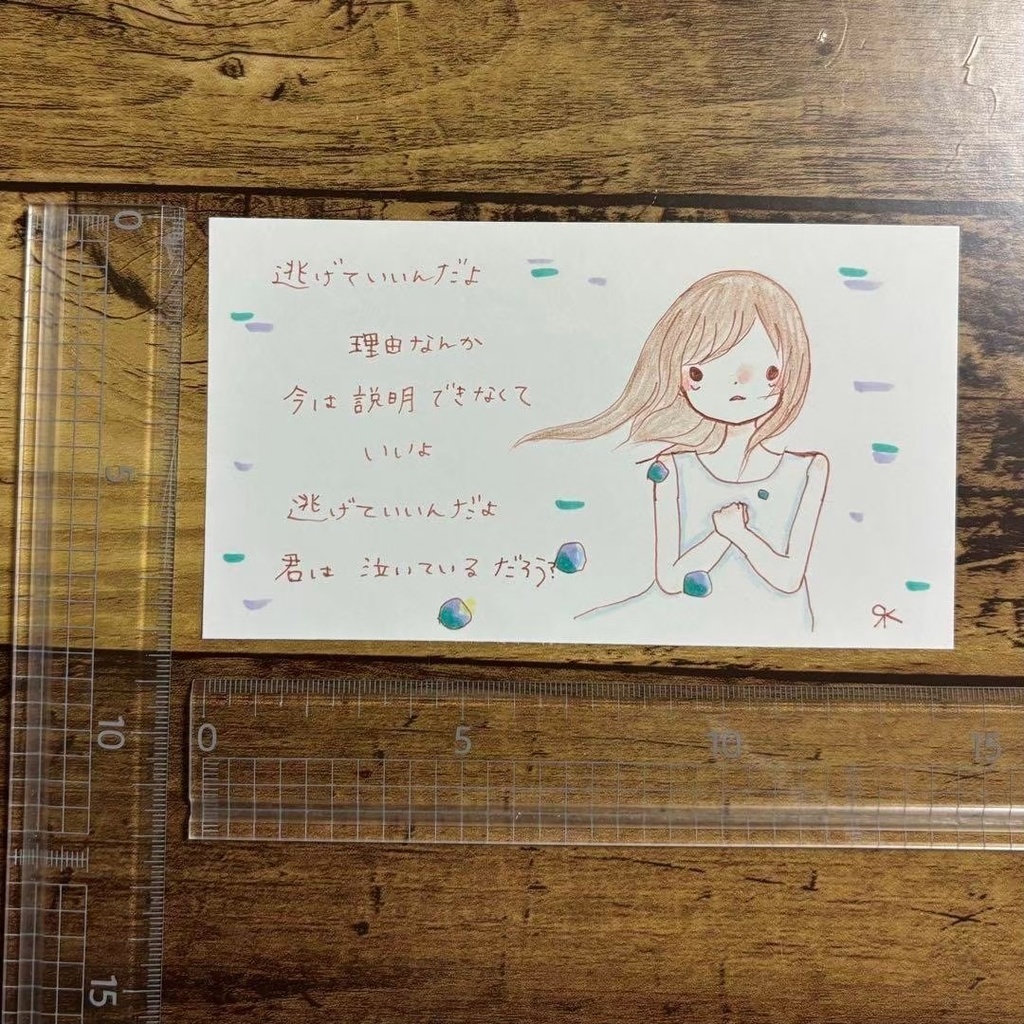 逃げていいんだよ
理由なんか
今は説明できなくて
いいよ
逃げていいんだよ
君は泣いているだろう?
0
5
10
15
0
5
10
15